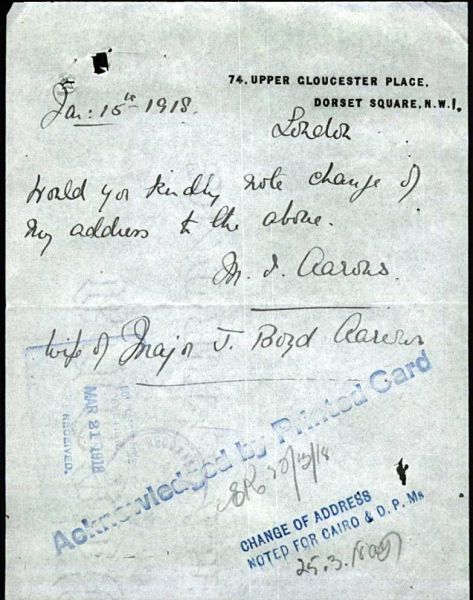 74. UPPER GLOUCESTER PLACE,
DORSET SQUARE, N.W.1.
London
Jan: 15th 1918.
Would you kindly note change of
my address to the above.
M. J. Aarons.
Wife of Major J. Boyd Aarons
MAR 21 1918
RECEIVED.
Acknowledged by Printed Card
20/3/18
CHANGE OF ADDRESS
NOTED FOR CAIRO & D. P. Ms
25.3.